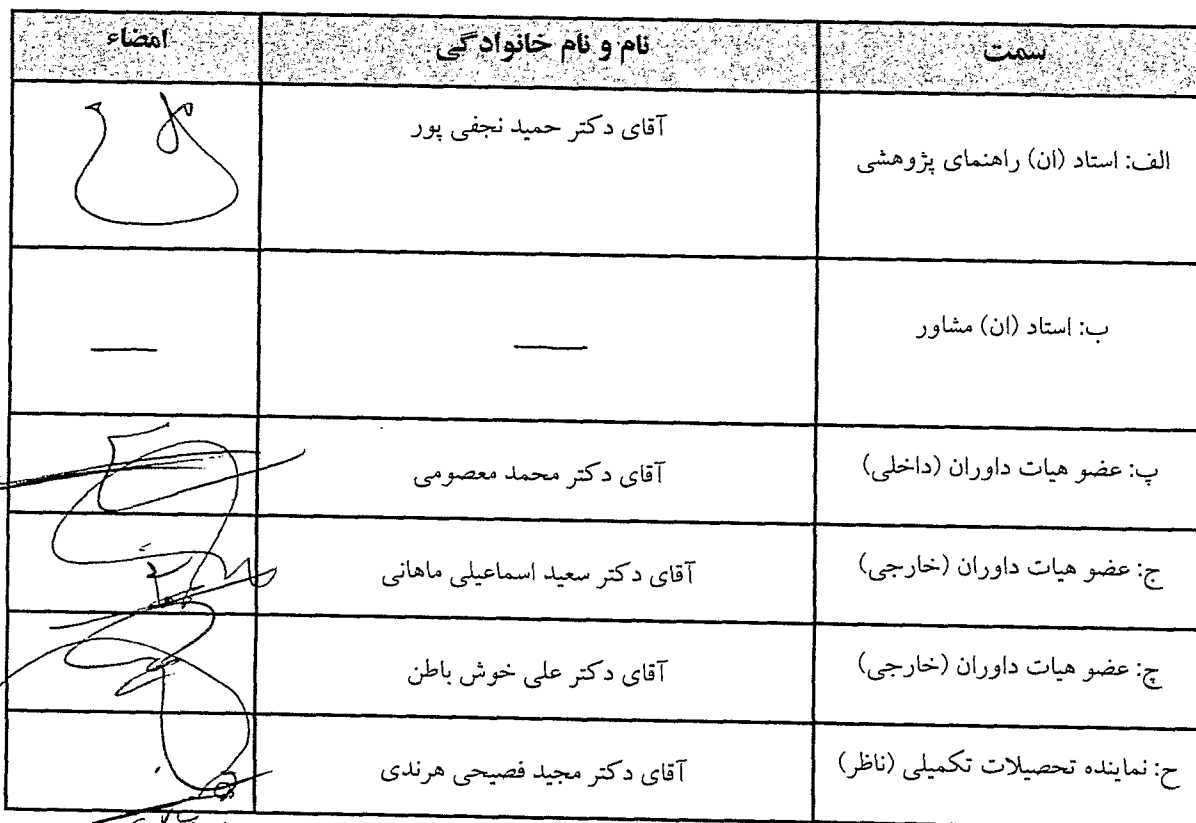 سمت نام و نام خانوادگی امضاء
الف: استاد (ان) راهنمای پژوهشی آقای دکتر حمید نجفی پور
ب: استاد (ان) مشاور — —
پ: عضو هیات داوران (داخلی) آقای دکتر محمد معصومی
ج: عضو هیات داوران (خارجی) آقای دکتر سعید اسماعیلی ماهانی
چ: عضو هیات داوران (خارجی) آقای دکتر علی خوش باطن
ح: نماینده تحصیلات تکمیلی (ناظر) آقای دکتر مجید فصیحی هرندی